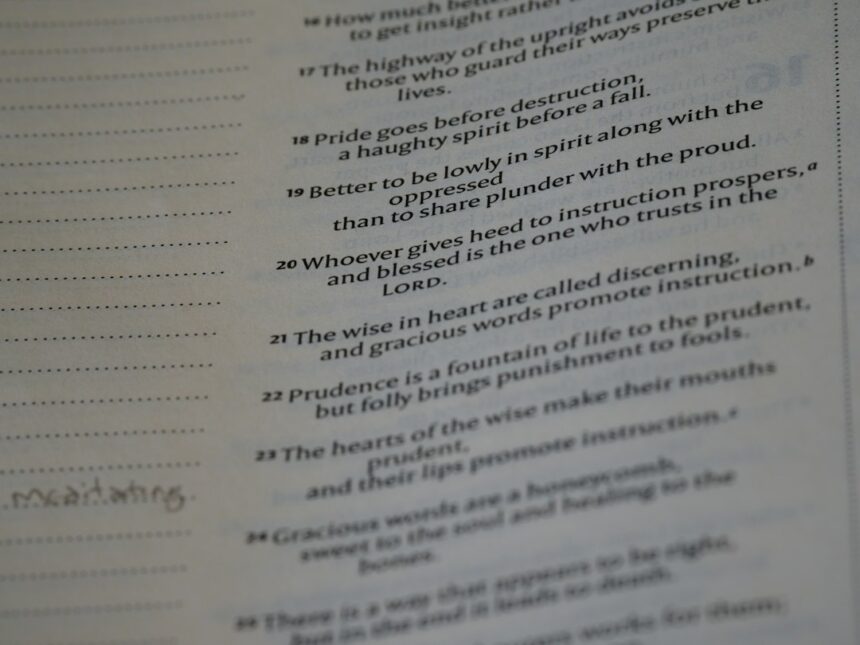 16 How much better
to get insight rather
17 The highway of the upright avoids
those who guard their ways preserve
lives.
18 Pride goes before destruction,
a haughty spirit before a fall.
19 Better to be lowly in spirit along with the
oppressed
than to share plunder with the proud.
20 Whoever gives heed to instruction prospers, a
and blessed is the one who trusts in the
LORD.
21 The wise in heart are called discerning,
and gracious words promote instruction. b
22 Prudence is a fountain of life to the prudent,
but folly brings punishment to fools.
23 The hearts of the wise make their mouths
prudent,
and their lips promote instruction.
24 Gracious words are a honeycomb,
sweet to the soul and healing to the
bones.
25 There is a way that appears to be right,
but in the end it leads to death.
works for them;
16